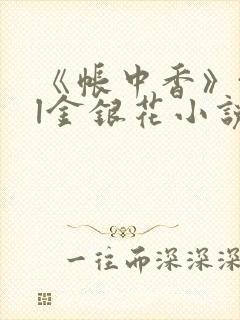 《帐中香》
|金银花小说
一往而深深深